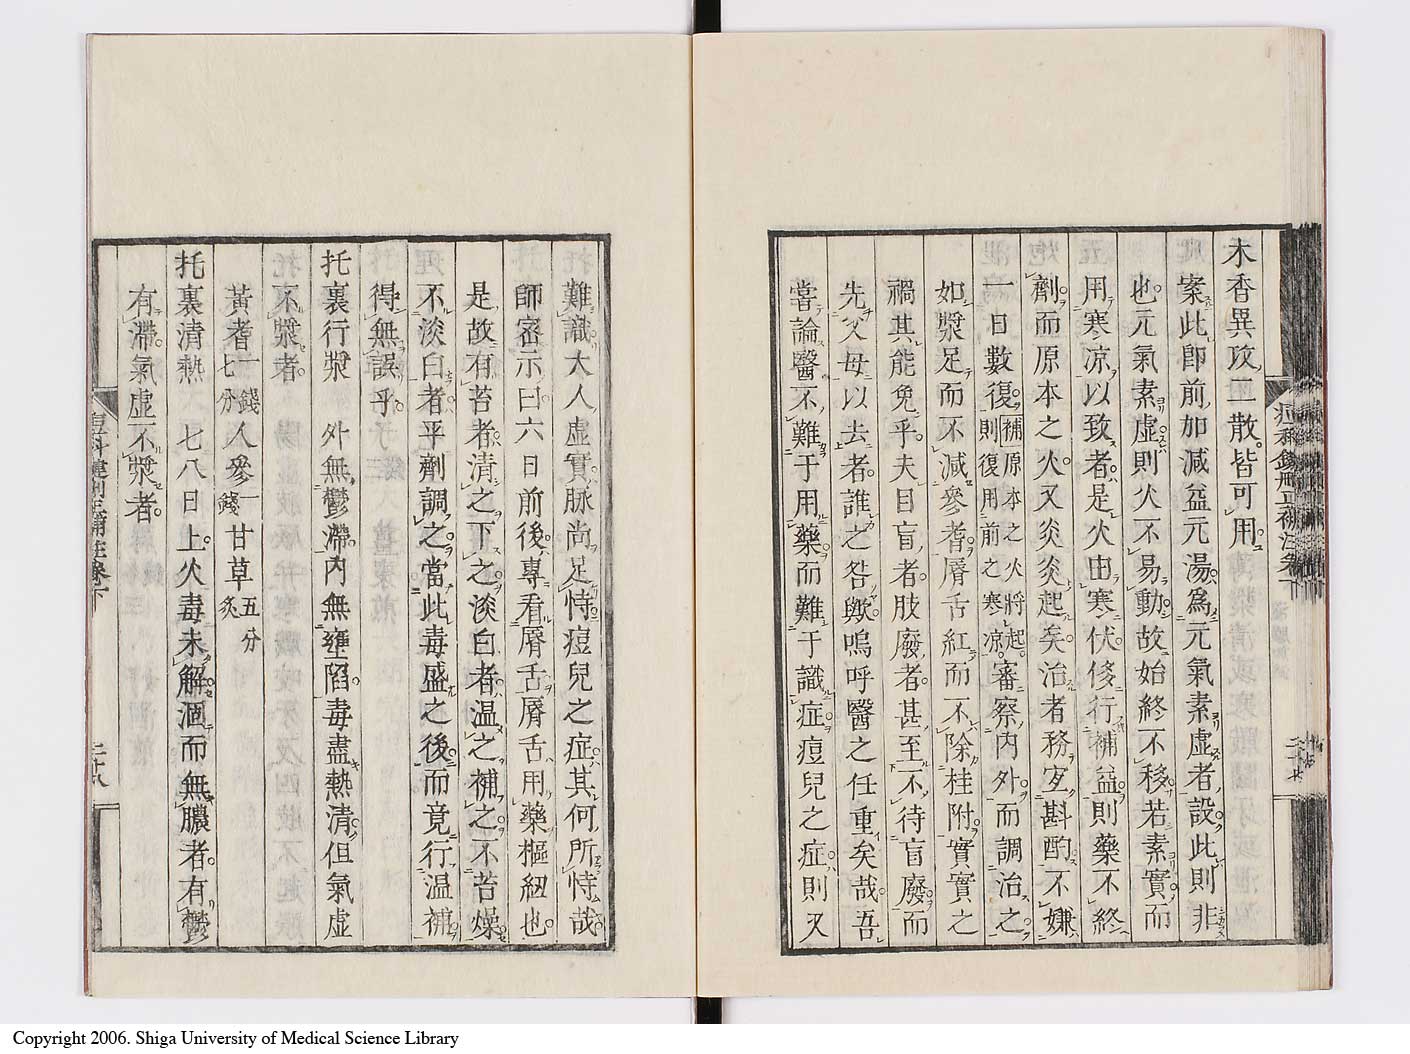 木香異攻二散皆可用
案此即前加減益元湯為元氣素虛者設此則非
也元氣素虛則火不易動故始終不移若素實而
用寒凉以致者是火由寒伏後行補益則藥不終
劑而原本之火又炎炎起矣治者務宜斟酌不嫌
一日數復補原本之火將起則復用前之寒凉審察內外而調治之
如漿足而不減參耆脣舌紅而不除桂附實實之
禍其能免乎夫目盲者肢廢者甚至不待盲廢而
先父母以去者誰之咎歟嗚呼醫之任重矣哉吾
嘗論醫不難于用藥而難于識症痘兒之症則又
難識大人虛實脉尚足恃痘兒之症其何所恃哉
師密示曰六日前後專看脣舌脣舌用藥樞紐也
是故有苔者清之下之淡白者温之補之不苔燥
不淡白者平劑調之當此毒盛之後而竟行温補
得無誤乎
托裏行漿　外無鬱滯內無壅陷毒盡熱清但氣虛
不漿者
黃耆一錢七分人參一錢甘草五分炙
托裏清熱　七八日上火毒未解涸而無膿者有鬱
有滯氣虛不漿者
二十八
Copyright 2006. Shiga University of Medical Science Library